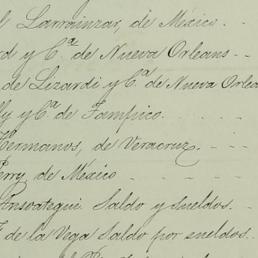 l Larrainzar, de México.
rd y Cª. de Nueva Orleans
de Lizardi y Cª de Nueva Orlea
lly y Cª. de Tampico.
Hermanos, de Veracruz.
erry de México
Saldo y sueldos.
de la Vega Saldo por sueldos.